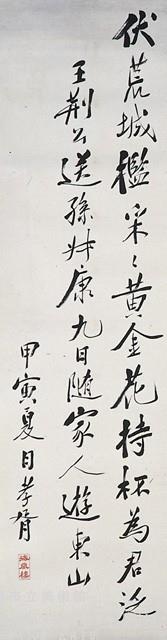 伏荒城檻采〻黄金花持杯為君泛
王荆公送孫叔康九日随家人遊東山
甲寅夏日孝胥